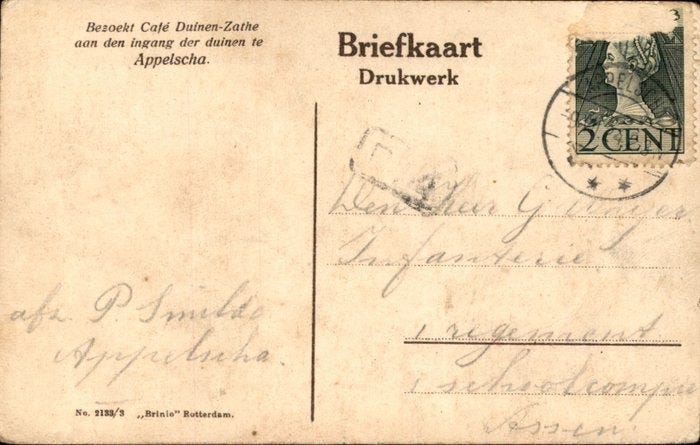 Bezoekt Café Duinen-Zathe
aan den ingang der duinen te
Appelscha.
Briefkaart
Drukwerk
2 CENT
Den Heer G
Infanterie
1 regement
1 schoolcompie
Assen.
afz P Smilde
Appelscha.
No. 2133/3 „Brinio" Rotterdam.